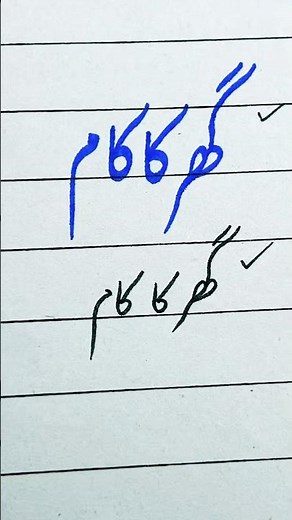 گھر کا کام
گھر کا کام